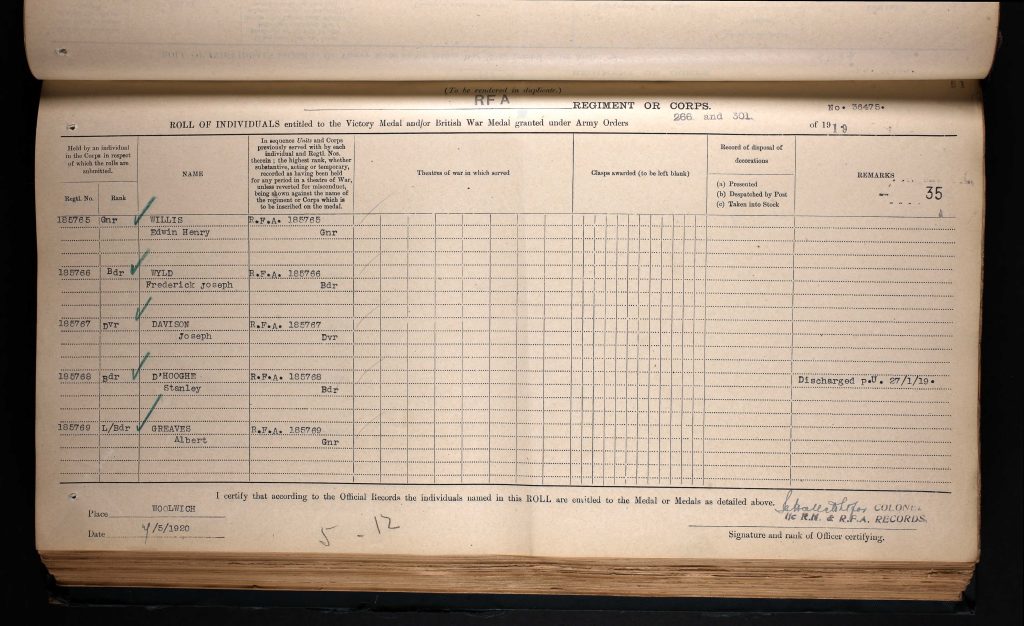 (To be rendered in duplicate.)
RFA REGIMENT OR CORPS. No. 36475.
ROLL OF INDIVIDUALS entitled to the Victory Medal and/or British War Medal granted under Army Orders 266 and 301. of 1919
Held by an individual in the Corps in respect of which the rolls are submitted.
Regtl. No.
Rank
NAME
In sequence Units and Corps previously served with by each individual and Regtl. Nos. therein; the highest rank, whether substantive, acting or temporary, recorded as having been held for any period in a theatre of War, unless reverted for misconduct, being shown against the name of the regiment or Corps which is to be inscribed on the medal.
Theatres of war in which served
Clasps awarded (to be left blank)
Record of disposal of decorations
(a) Presented
(b) Despatched by Post
(c) Taken into Stock
REMARKS
35
185765 Gnr WILLIS R.F.A. 185765
Edwin Henry Gnr
185766 Bdr WYLD R.F.A. 185766
Frederick Joseph Bdr
185767 Dvr DAVISON R.F.A. 185767
Joseph Dvr
185768 Bdr D'HOOGHE R.F.A. 185768 Discharged p.U. 27/1/19.
Stanley Bdr
185769 L/Bdr GREAVES R.F.A. 185769
Albert Gnr
I certify that according to the Official Records the individuals named in this ROLL are entitled to the Medal or Medals as detailed above.
Place WOOLWICH
Date 4/5/1920
5 - 12
for COLONEL
i/c R.H. & R.F.A. RECORDS.
Signature and rank of Officer certifying.